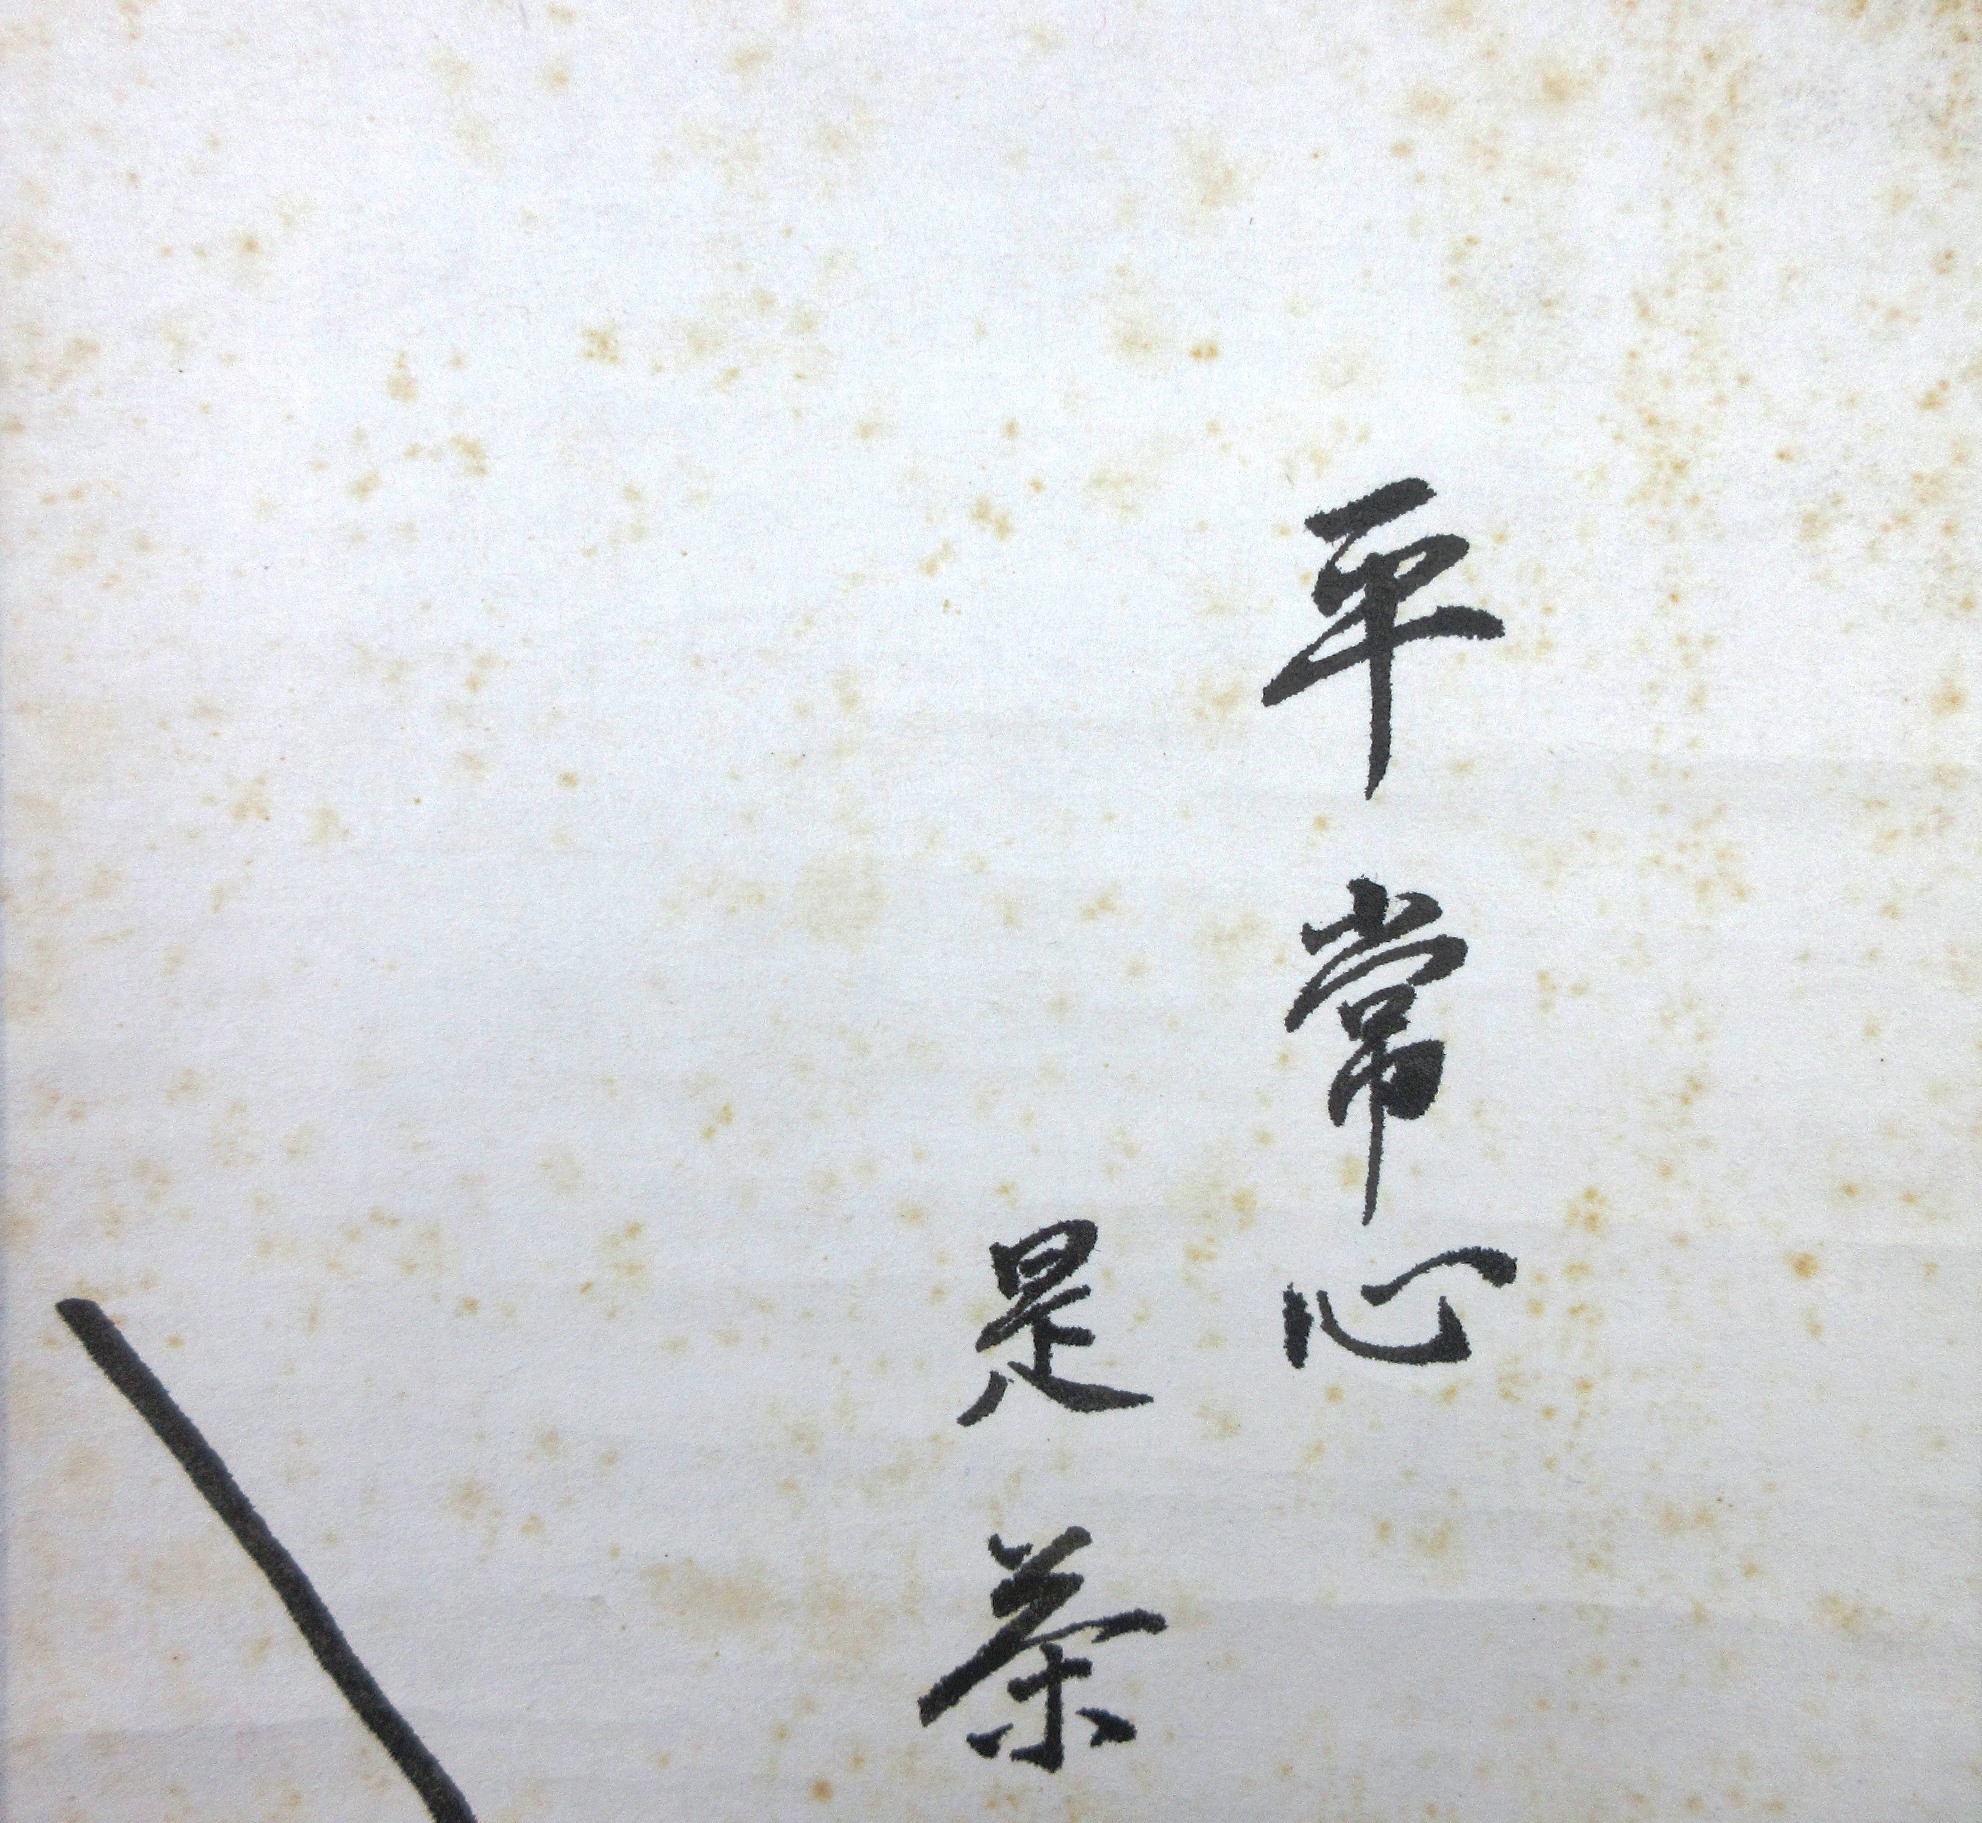 平常心
是茶